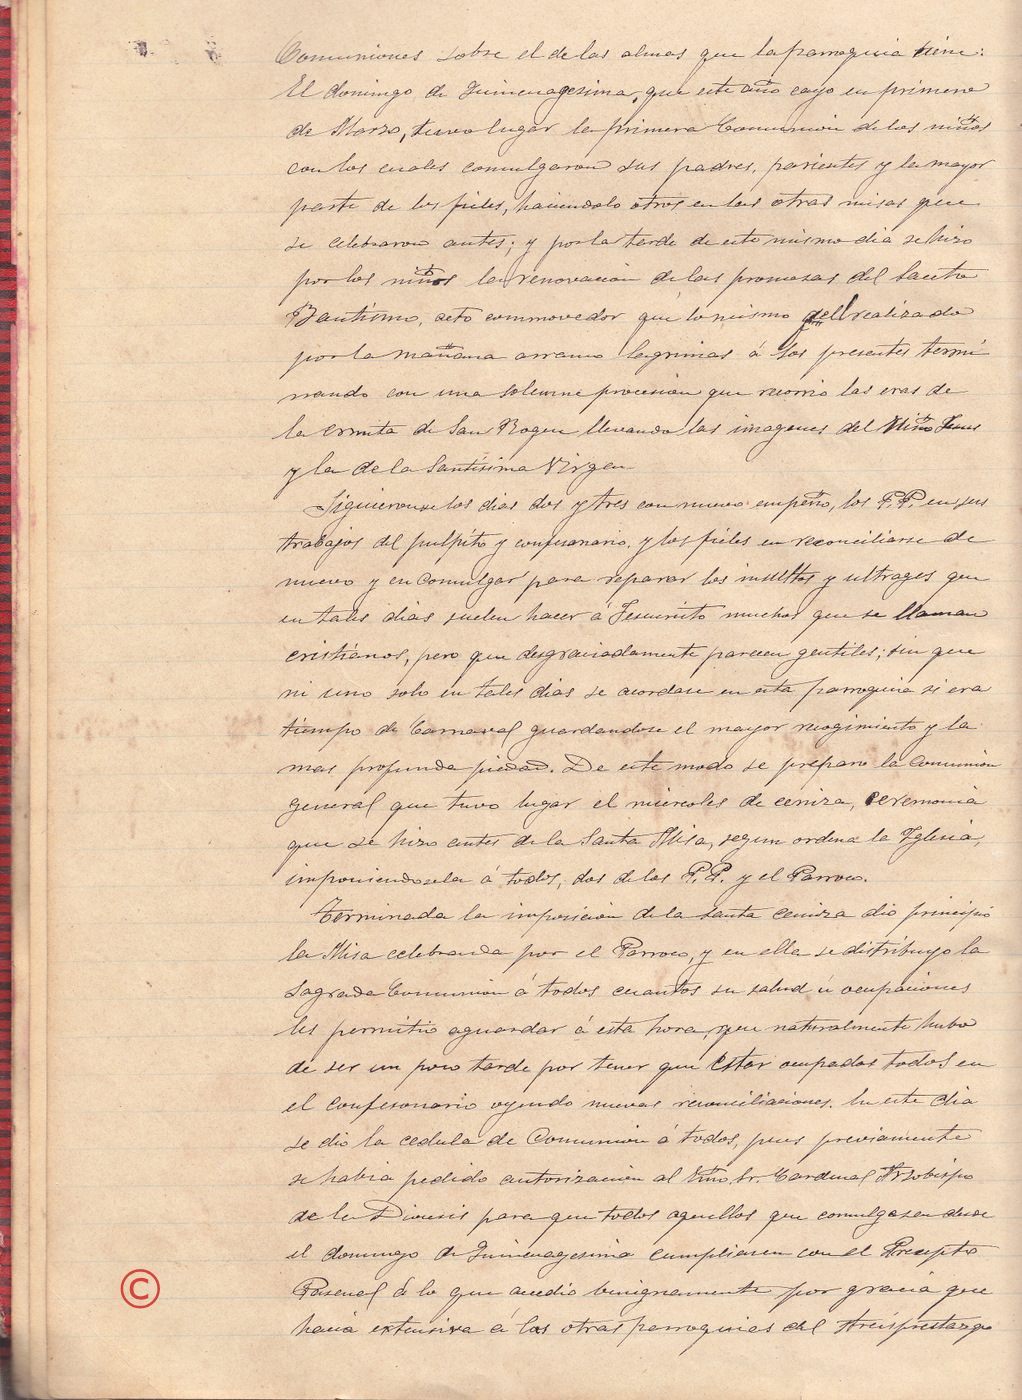 Comuniones sobre el de las almas que la parroquia tiene:
El domingo de Quincuagesima, que este año cayo en primero
de Marzo, tuvo lugar la primera Comunión de los niños
con los cuales comulgaron sus padres, parientes y la mayor
parte de los fieles, haciendolo otros en las otras misas que
se celebraron antes; y por la tarde de este mismo dia se hizo
por los niños la renovacion de las promesas del Santo
Bautismo, acto conmovedor que lo mismo qe el realizado
por la mañana arranco lagrimas á los presentes termi
nando con una solemne procesion que recorrio las eras de
la ermita de San Roque llevando las imagenes del Niño Jesus
y la de la Santisima Virgen
Siguieronse los dias dos y tres con nuevo empeño, los P.P. en sus
trabajos del pulpito y confesonario, y los fieles en reconciliarse de
nuevo y en comulgar para reparar los insultos y ultrages que
en tales dias suelen hacer á Jesucristo muchos que se llaman
cristianos, pero que desgraciadamente parecen gentiles; sin que
ni uno solo en tales dias se acordase en esta parroquia si era
tiempo de Carnaval guardandose el mayor recogimiento y la
mas profunda piedad. De este modo se preparo la Comunion
general que tuvo lugar el miercoles de ceniza, ceremonia
que se hizo antes de la Santa Misa, segun ordena la Iglesia,
imponiendosela á todos, dos de los P.P. y el Parroco.
Terminada la imposicion de la santa ceniza dio principio
la Misa celebrada por el Parroco, y en ella se distribuyo la
Sagrada Comunion á todos cuantos su salud ú ocupaciones
les permitio aguardar á esta hora, que naturalmente hubo
de ser un poco tarde por tener que estar ocupados todos en
el confesonario oyendo nuevas reconciliaciones. En este dia
se dio la cedula de Comunion á todos, pues previamente
se habia pedido autorizacion al Emo. Sr. Cardenal Arzobispo
de la Diocesis para que todos aquellos que comulgasen desde
el domingo de Quincuagesima cumpliesen con el Precepto
Pascual á lo que accedio benignamente por gracia que
hacia extensiva á las otras parroquias del Arciprestazgo
©